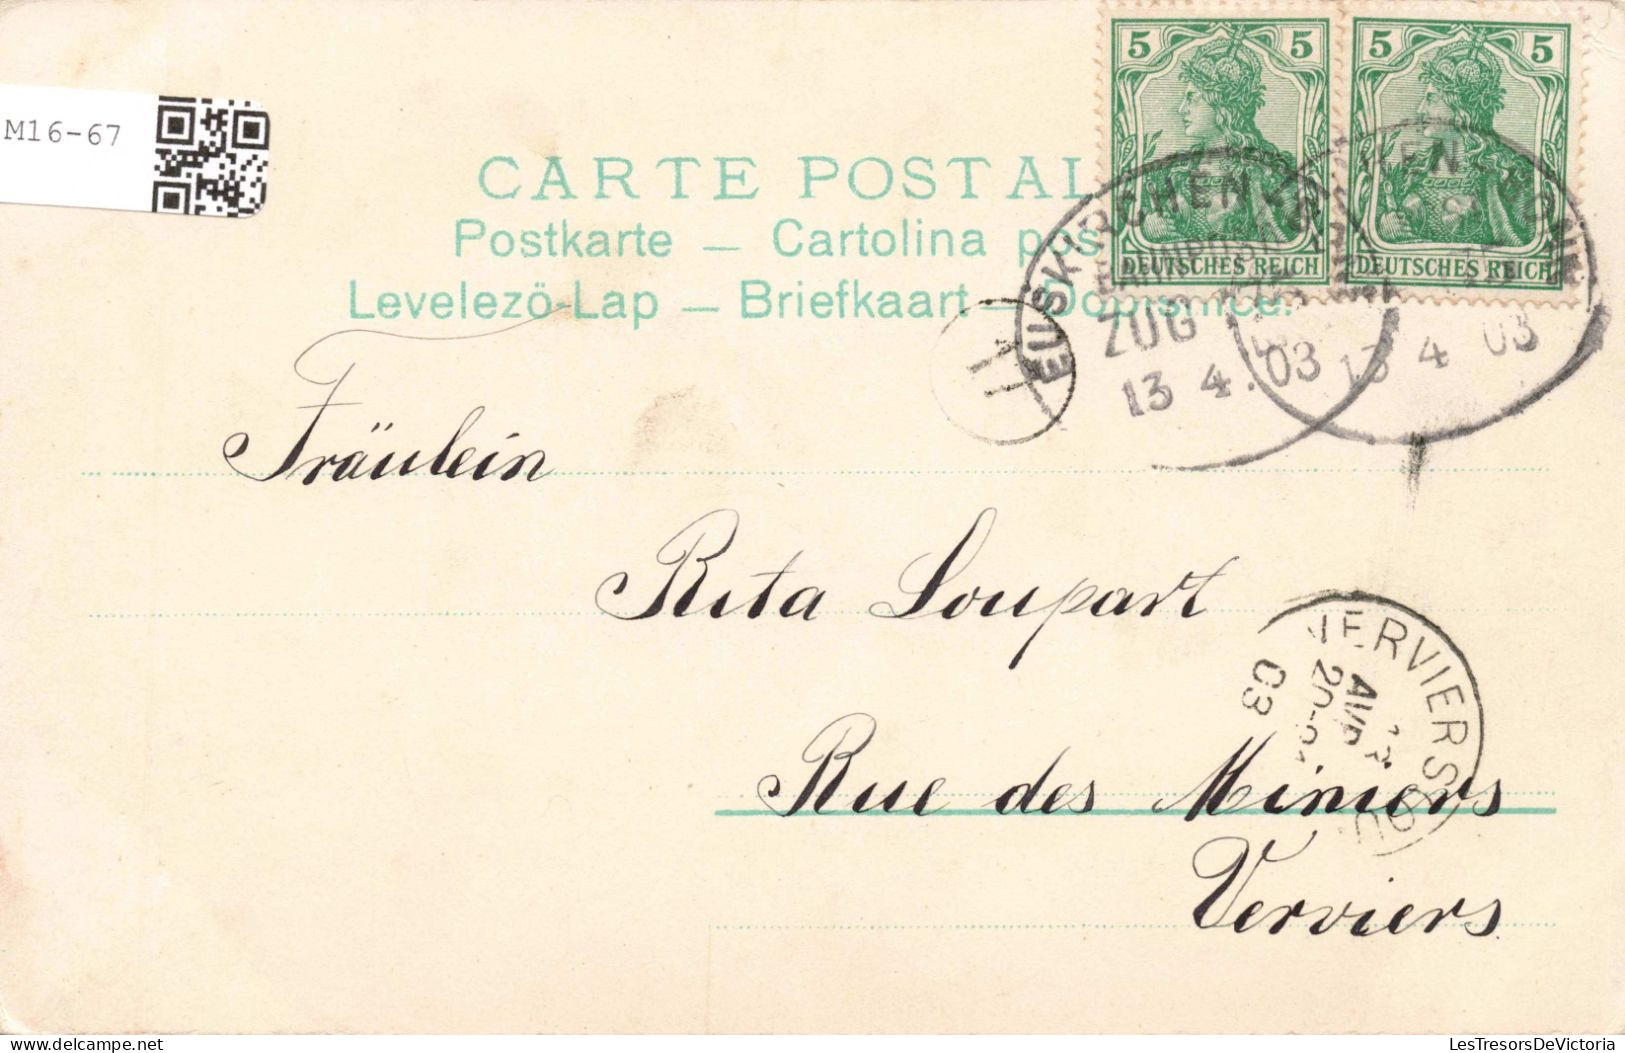 M16-67
5 5 5 5
CARTE POSTAL
Postkarte — Cartolina pos
Levelezö-Lap — Briefkaart — Dopisnice.
DEUTSCHES REICH DEUTSCHES REICH
EUSKIRCHEN
BAHNPOST
ZUG
13 4. 03 13 4 03
Fräulein
Rita Loupart
VERVIERS
AVR
03
Rue des Miniers
Verviers
delcampe.net
LesTresorsDeVictoria